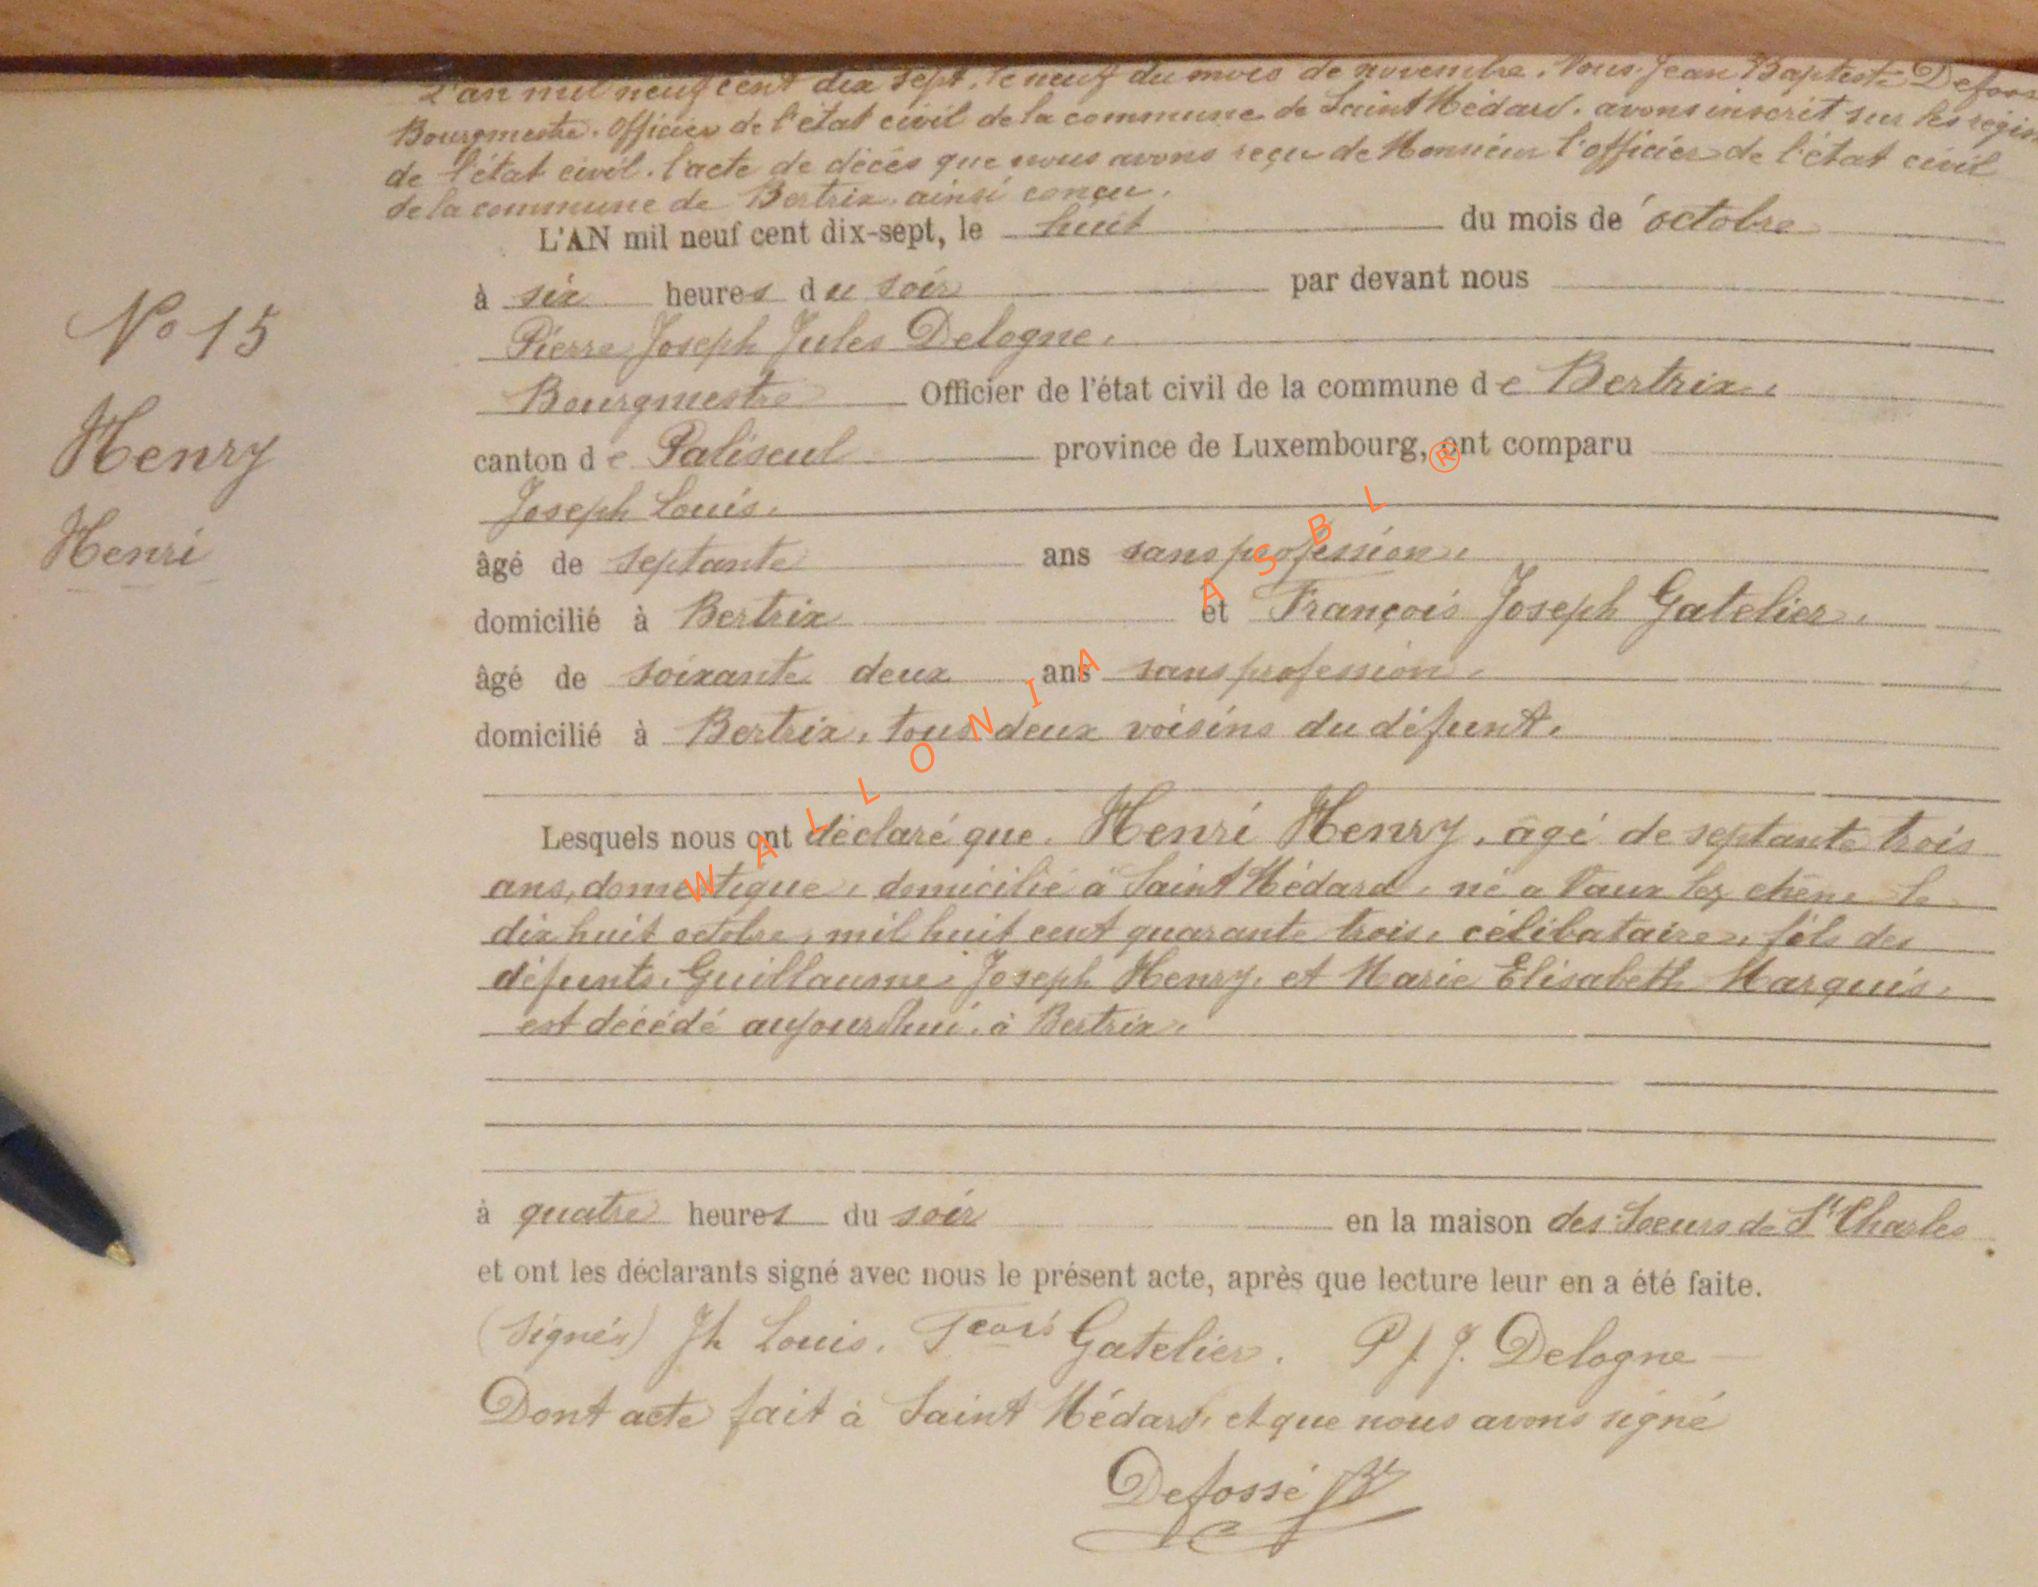 L'an mil neuf cent dix sept, le neuf du mois de novembre. Nous Jean Baptiste
Bourgmestre. Officier de l'état civil de la commune de Saint Médard. avons inscrit sur les
de l'état civil. l'acte de décès que nous avons reçu de Monsieur l'officier de l'état civil
de la commune de Bertrix. ainsi conçu.
L'AN mil neuf cent dix-sept, le huit du mois de octobre
à six heures du soir par devant nous
Pierre Joseph Jules Delogne.
Bourgmestre Officier de l'état civil de la commune de Bertrix.
canton de Paliseul province de Luxembourg, ont comparu
Joseph Louis.
âgé de septante ans sans profession.
domicilié à Bertrix et François Joseph Gatelier.
âgé de soixante deux ans sans profession.
domicilié à Bertrix, tous deux voisins du défunt.
Lesquels nous ont déclaré que. Henri Henry, âgé de septante trois
ans, domestique, domicilié à Saint Médard, né a Vaux lez chêne le
dix huit octobre, mil huit cent quarante trois, célibataire, fils des
défunts, Guillaume, Joseph Henry, et Marie Elisabeth Marquis.
est décédé aujourdhui, à Bertrix.
à quatre heures du soir en la maison des Sœurs de St Charles
et ont les déclarants signé avec nous le présent acte, après que lecture leur en a été faite.
(Signés) Jh Louis. Gatelier. P J. J. Delogne
Dont acte fait à Saint Médard, et que nous avons signé
Defossé
No 15
Henry
Henri
WALLONIA ASBL ®